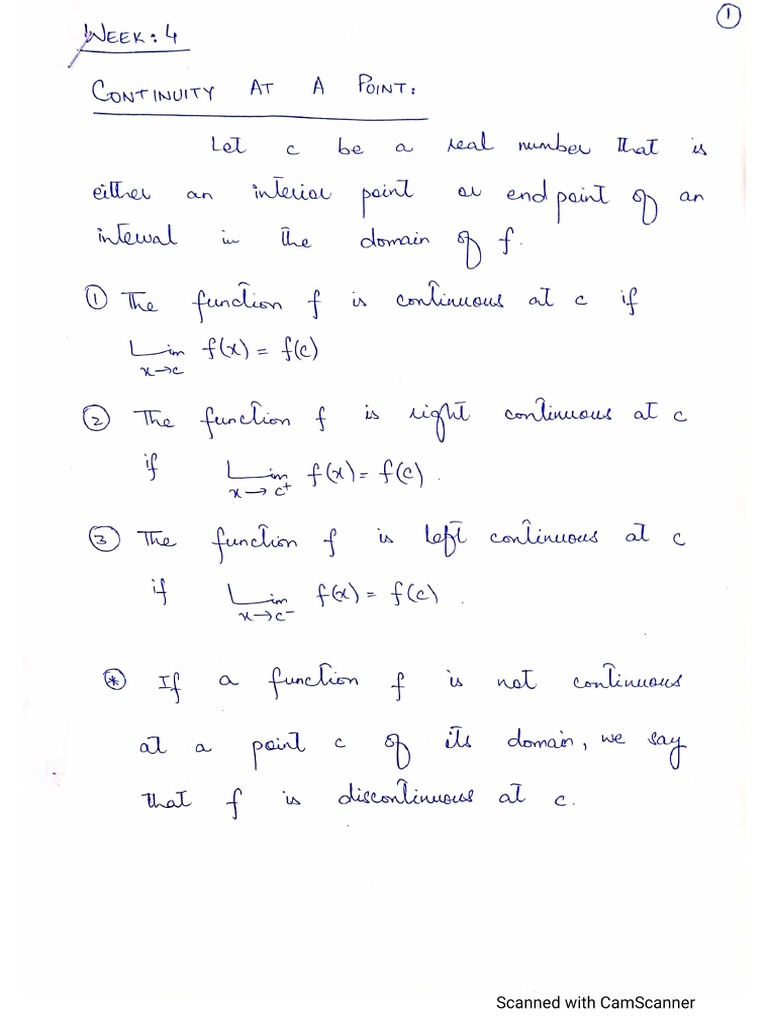 ①
WEEK: 4
CONTINUITY AT A POINT:
Let c be a real number that is
either an interior point or end point of an
interval in the domain of f.
① The function f is continuous at c if
Lim f(x) = f(c)
x→c
② The function f is right continuous at c
if Lim f(x) = f(c).
x→c⁺
③ The function f is left continuous at c
if Lim f(x) = f(c).
x→c⁻
⊛ If a function f is not continuous
at a point c of its domain, we say
that f is discontinuous at c.
Scanned with CamScanner